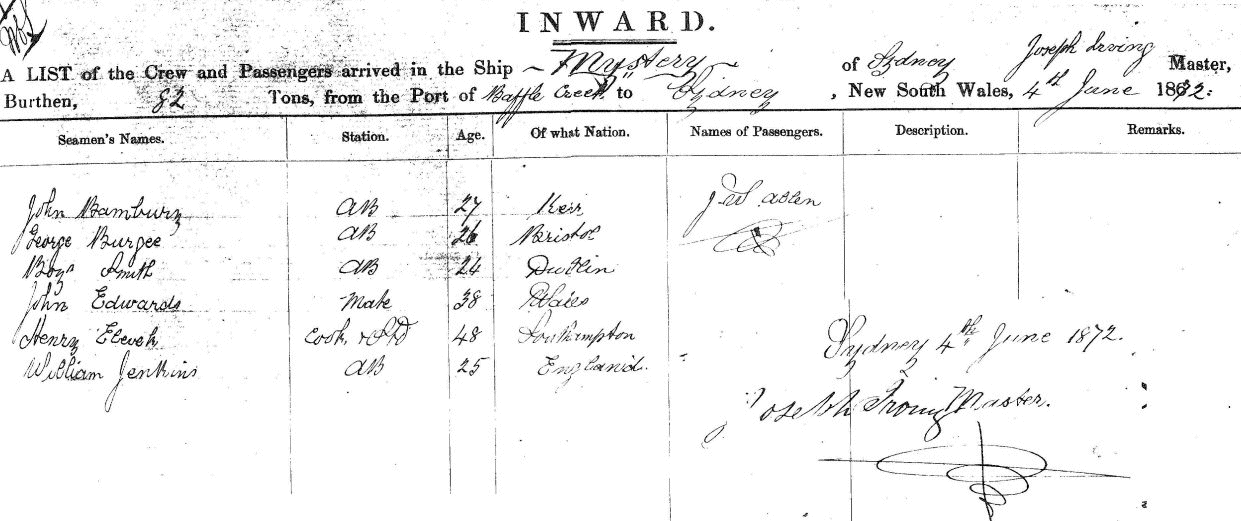 INWARD.
A LIST of the Crew and Passengers arrived in the Ship Mystery of Sydney Joseph Irving Master,
Burthen, 82 Tons, from the Port of Baffle Creek to Sydney, New South Wales, 4th June 1872.
Seamen's Names. Station. Age. Of what Nation. Names of Passengers. Description. Remarks.
John Bambury AB 27 Kerr
George Burgee AB 26 Bristol
Smith AB 24 Dublin
John Edwards Mate 38 Wales
Henry Cook & Std 48 Southampton
William Jenkins AB 25 England.
Sydney 4th June 1872.
Joseph Irving Master.